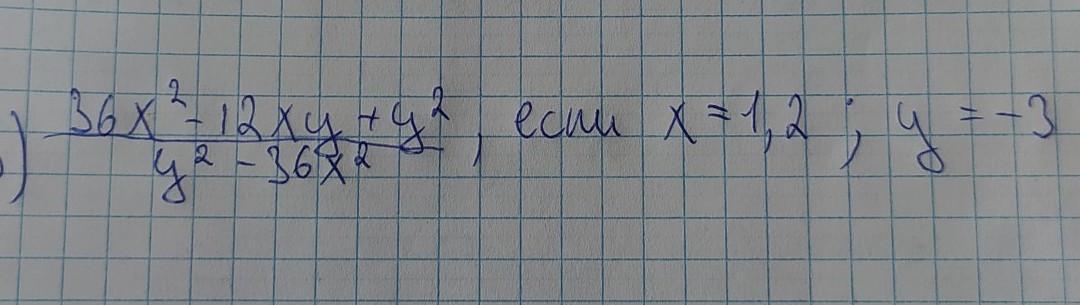 ) 36x² - 12xy + y² / y² - 36x², если x = 1,2 ; y = -3